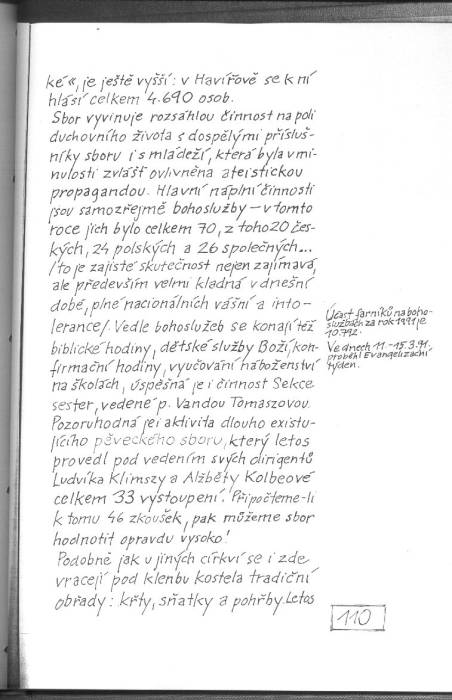 ké“, je ještě vyšší: v Havířově se k ní
hlásí celkem 4.690 osob.
Sbor vyvinuje rozsáhlou činnost na poli
duchovního života s dospělými přísluš-
níky sboru i s mládeží, která byla v mi-
nulosti zvlášť ovlivněna ateistickou
propagandou. Hlavní náplní činnosti
jsou samozřejmě bohoslužby – v tomto
roce jich bylo celkem 70, z toho 20 čes-
kých, 24 polských a 26 společných...
/to je zajisté skutečnost nejen zajímavá,
ale především velmi kladná v dnešní
době, plné nacionálních vášní a into-
lerance/. Vedle bohoslužeb se konají též
biblické hodiny, dětské služby Boží, kon-
firmační hodiny, vyučování náboženství
na školách, úspěšná je i činnost Sekce
sester, vedené p. Vandou Tomaszovou.
Pozoruhodná jei aktivita dlouho existu-
jícího pěveckého sboru, který letos
provedl pod vedením svých dirigentů
Ludvíka Klimszy a Alžběty Kolbeové
celkem 33 vystoupení. Připočteme-li
k tomu 46 zkoušek, pak můžeme sbor
hodnotit opravdu vysoko!
Podobně jak u jiných církví se i zde
vracejí pod klenbu kostela tradiční
obřady: křty, sňatky a pohřby. Letos
Účast farníků na boho-
službách za rok 1991 je
10.792.
Ve dnech 11.-15.3.91.
proběhl Evangelizační
týden.
110